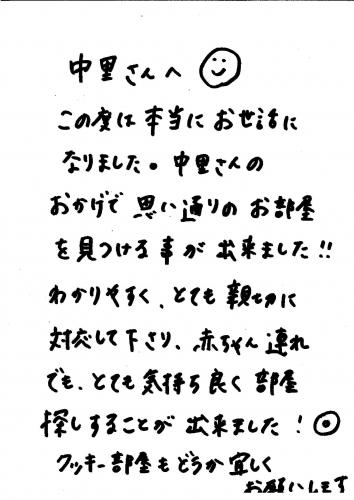 中里さんへ
この度は本当にお世話に
なりました。中里さんの
おかげで思い通りのお部屋
を見つける事が出来ました!!
わかりやすく、とても親切に
対応して下さり、赤ちゃん連れ
でも、とても気持ち良く部屋
探しすることが出来ました!
クッキー部屋もどうか宜しく
お願いします